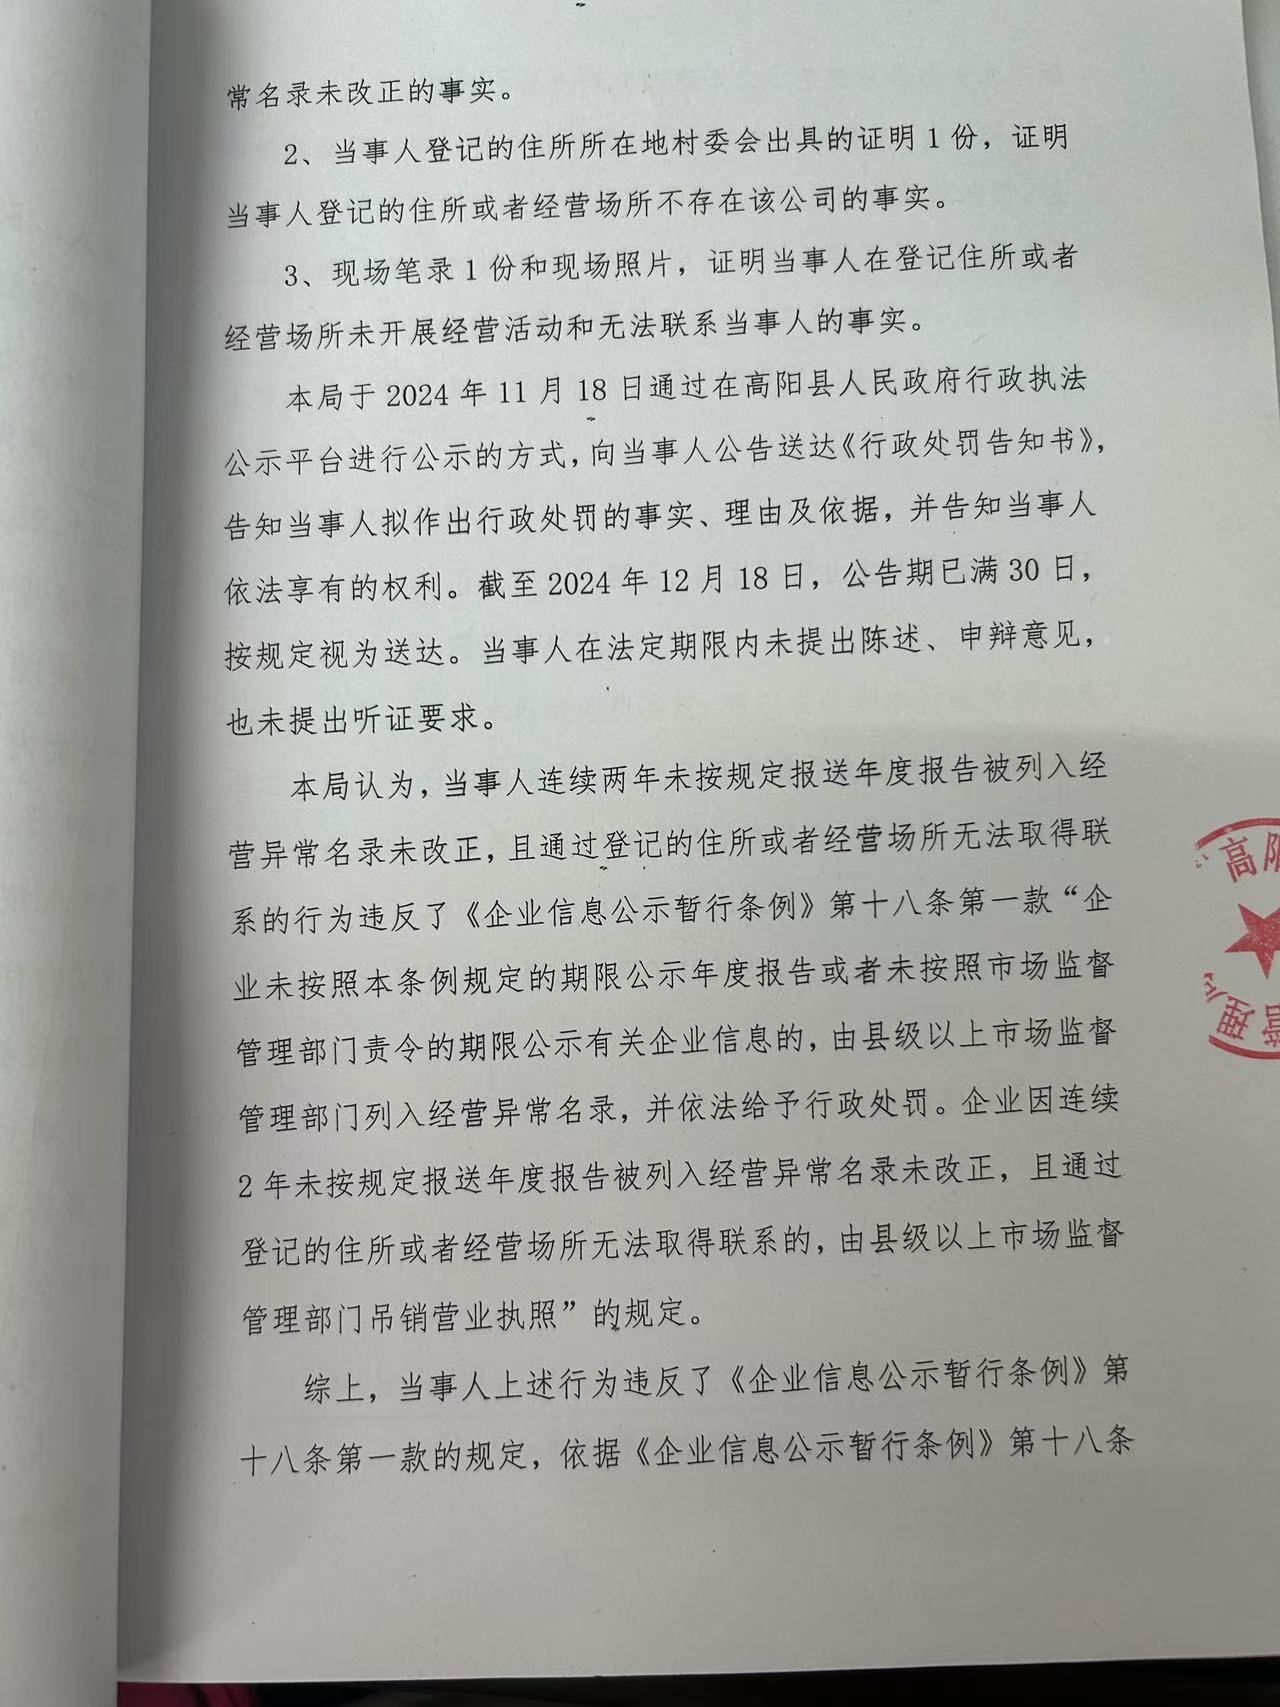 常名录未改正的事实。
2、当事人登记的住所所在地村委会出具的证明1份，证明
当事人登记的住所或者经营场所不存在该公司的事实。
3、现场笔录1份和现场照片，证明当事人在登记住所或者
经营场所未开展经营活动和无法联系当事人的事实。
本局于2024年11月18日通过在高阳县人民政府行政执法
公示平台进行公示的方式，向当事人公告送达《行政处罚告知书》，
告知当事人拟作出行政处罚的事实、理由及依据，并告知当事人
依法享有的权利。截至2024年12月18日，公告期已满30日，
按规定视为送达。当事人在法定期限内未提出陈述、申辩意见，
也未提出听证要求。
本局认为，当事人连续两年未按规定报送年度报告被列入经
营异常名录未改正，且通过登记的住所或者经营场所无法取得联
系的行为违反了《企业信息公示暂行条例》第十八条第一款“企
业未按照本条例规定的期限公示年度报告或者未按照市场监督
管理部门责令的期限公示有关企业信息的，由县级以上市场监督
管理部门列入经营异常名录，并依法给予行政处罚。企业因连续
2年未按规定报送年度报告被列入经营异常名录未改正，且通过
登记的住所或者经营场所无法取得联系的，由县级以上市场监督
管理部门吊销营业执照”的规定。
综上，当事人上述行为违反了《企业信息公示暂行条例》第
十八条第一款的规定，依据《企业信息公示暂行条例》第十八条
高阳
管理